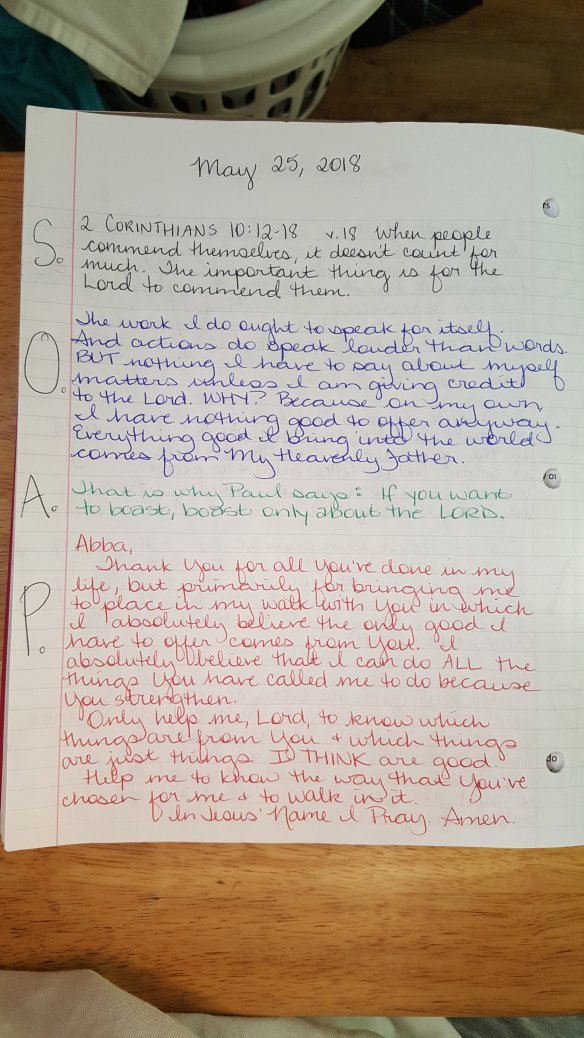 May 25, 2018
S. 2 CORINTHIANS 10:12-18 v.18 When people
commend themselves, it doesn't count for
much. The important thing is for the
Lord to commend them.
O. The work I do ought to speak for itself.
And actions do speak louder than words.
BUT nothing I have to say about myself
matters unless I am giving credit
to the Lord. WHY? Because on my own,
I have nothing good to offer anyway.
Everything good I bring into the world
comes from My Heavenly Father.
A. That is why Paul says: If you want
to boast, boast only about the LORD.
P. Abba,
Thank You for all You've done in my
life, but primarily for bringing me
to place in my walk with You in which
I absolutely believe the only good I
have to offer comes from You. I
absolutely believe that I can do ALL the
things You have called me to do because
You strengthen.
Only help me, Lord, to know which
things are from You & which things
are just things I THINK are good.
Help me to know the way that You've
chosen for me & to walk in it.
In Jesus' Name I Pray. Amen.
rs
or
do